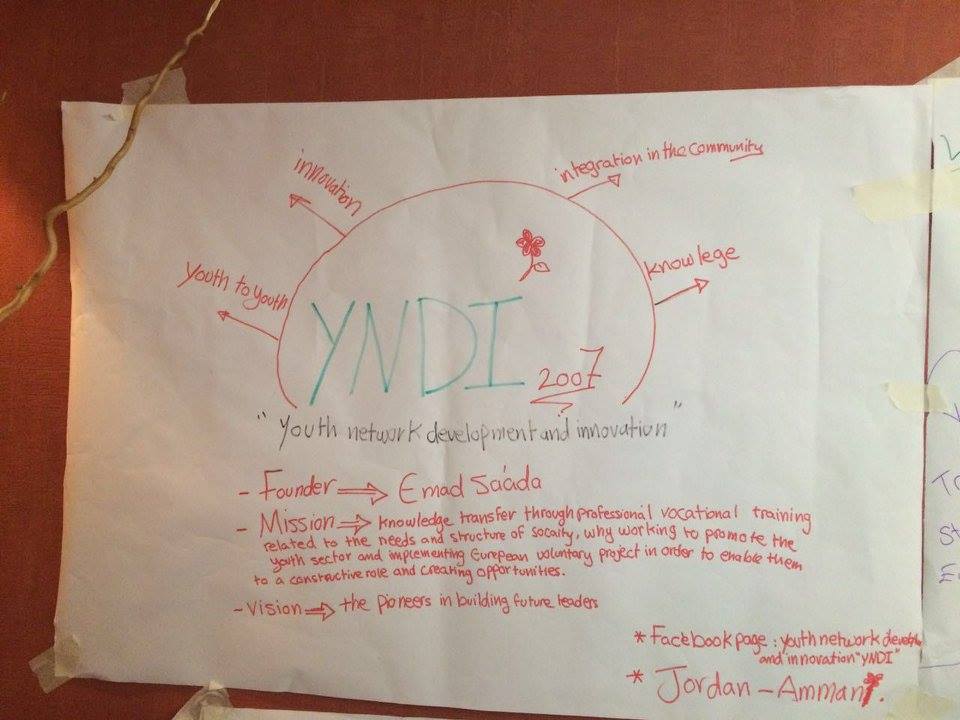 innovation
integration in the community
youth to youth
knowlege
YNDI
2007
"Youth network development and innovation"
- Founder ⇒ Emad Sa'ada
- Mission ⇒ knowledge transfer through professional vocational training
related to the needs and structure of socaity, why working to promote the
youth sector and implementing European voluntary project in order to enable them
to a constructive role and creating opportunities.
- Vision ⇒ the pioneers in building future leaders
* Facebook page : youth network develop
and innovation "YNDI"
* Jordan - Amman.